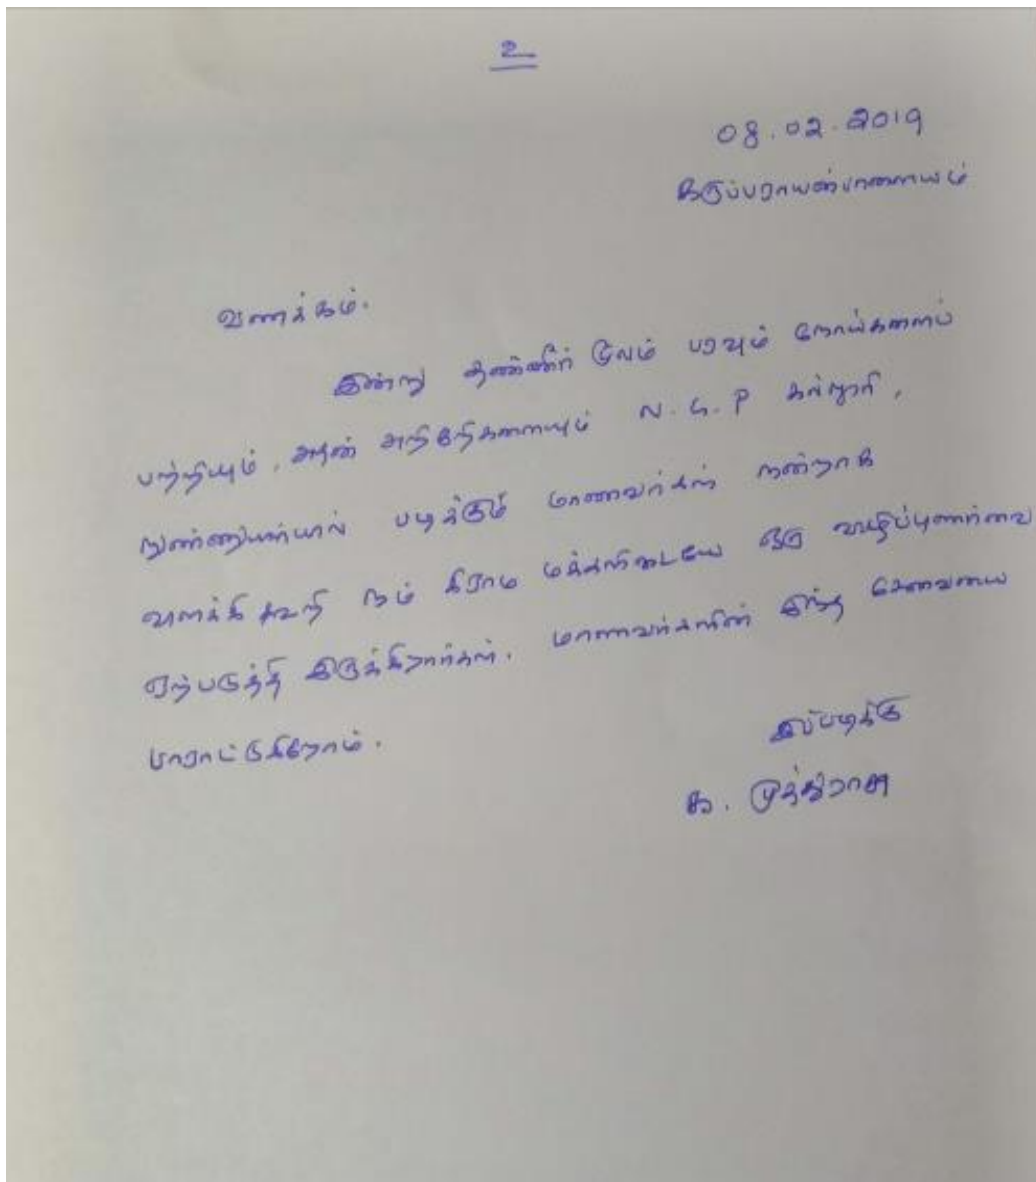 உ
08.02.2019
கருப்பராயன்பாளையம்
வணக்கம்.
இன்று தண்ணீர் மூலம் பரவும் நோய்களைப்
பற்றியும், அதன் அறிகுறிகளையும் N.G.P கல்லூரி,
நுண்ணுயிரியல் படிக்கும் மாணவர்கள் நன்றாக
விளக்கி கூறி நம் கிராம மக்களிடையே ஒரு விழிப்புணர்வை
ஏற்படுத்தி இருக்கிறார்கள். மாணவர்களின் இந்த சேவையை
பாராட்டுகிறோம்.
இப்படிக்கு
க. முத்துராசு